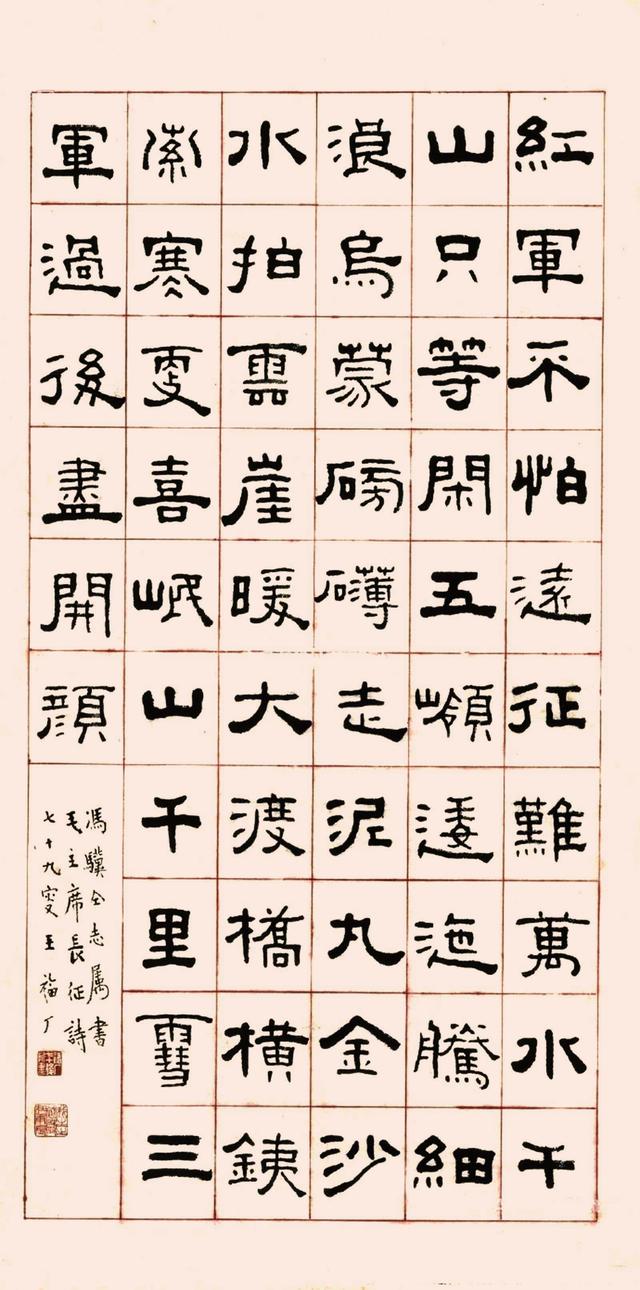 紅軍不怕遠征難萬水千
山只等閑五嶺逶迤騰細
浪烏蒙磅礴走泥丸金沙
水拍雲崖暖大渡橋橫銕
索寒更喜岷山千里雪三
軍過後盡開顏
馮驥仝志属書
毛主席長征詩
七十九叟王福厂